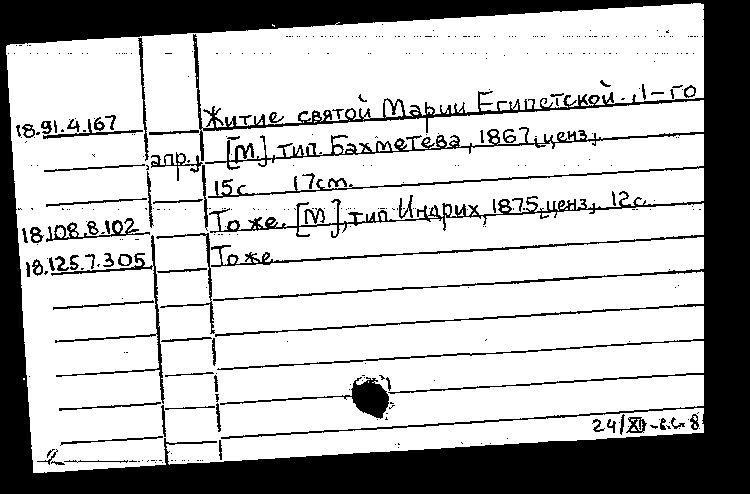 18.91.4.167 Житие святой Марии Египетской., 1-го
апр., [М.], тип. Бахметева, 1867, ценз.,
15с. 17cm.
18.108.8.102 То же. [М], тип Индрих, 1875, ценз,. 12с.
18.125.7.305 То же
24/XII